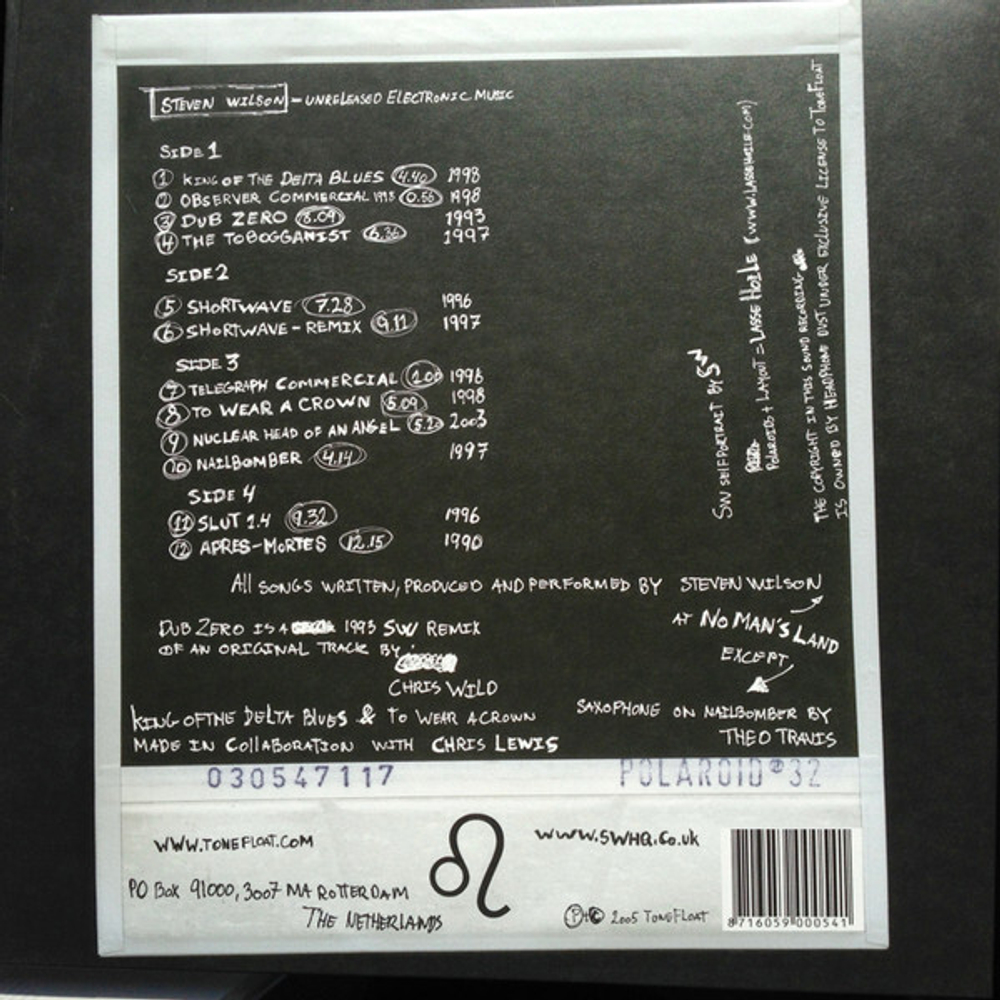 STEVEN WILSON - UNRELEASED ELECTRONIC MUSIC
SIDE 1
1 KING OF THE DELTA BLUES 4.40 1998
2 OBSERVER COMMERCIAL 1998 0.56 1998
3 DUB ZERO 8.09 1993
4 THE TOBOGGANIST 6.36 1997
SIDE 2
5 SHORTWAVE 7.28 1996
6 SHORTWAVE - REMIX 9.11 1997
SIDE 3
7 TELEGRAPH COMMERCIAL 1.00 1996
8 TO WEAR A CROWN 5.09 1998
9 NUCLEAR HEAD OF AN ANGEL 5.20 2003
10 NAILBOMBER 4.14 1997
SIDE 4
11 SLUT 1.4 9.32 1996
12 APRES-MORTES 12.15 1990
SW SELFPORTRAIT BY SW
POLAROIDS + LAYOUT = LASSE HOILE (WWW.LASSEHOILE.COM)
THE COPYRIGHT IN THIS SOUND RECORDING
IS OWNED BY HEADPHONE DUST UNDER EXCLUSIVE LICENSE TO TONEFLOAT
ALL SONGS WRITTEN, PRODUCED AND PERFORMED BY STEVEN WILSON
AT NO MAN'S LAND
EXCEPT
SAXOPHONE ON NAILBOMBER BY
THEO TRAVIS
DUB ZERO IS A 1993 SW REMIX
OF AN ORIGINAL TRACK BY
CHRIS WILD
KING OF THE DELTA BLUES & TO WEAR A CROWN
MADE IN COLLABORATION WITH CHRIS LEWIS
030547117
POLAROID® 32
WWW.TONEFLOAT.COM
WWW.SWHQ.CO.UK
PO BOX 91000, 3007 MA ROTTERDAM
THE NETHERLANDS
℗+© 2005 TONEFLOAT
8 716059 000541